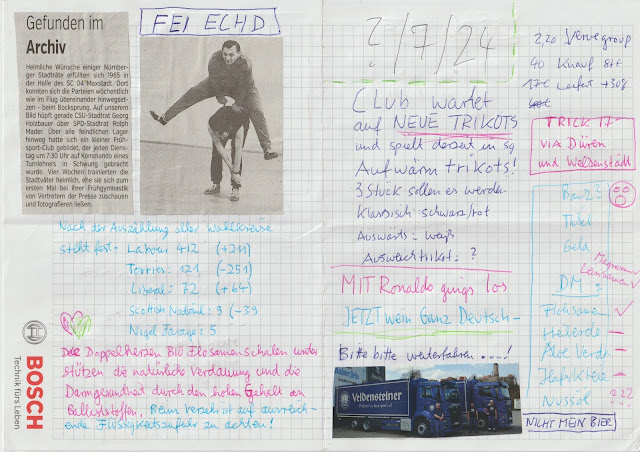 Gefunden im
Archiv
Heimliche Wünsche einiger Nürnber-
ger Stadträte erfüllten sich 1965 in
der Halle des SC 04 Maxstadt. Dort
konnten sich die Parteien wöchentlich
wie im Flug übereinander hinwegset-
zen – beim Bocksprung. Auf unserem
Bild hüpft gerade CSU-Stadtrat Georg
Holzbauer über SPD-Stadtrat Rolph
Mader. Über alle feindlichen Lager
hinweg hatte sich ein kleiner Früh-
sport-Club gebildet, der jeden Diens-
tag um 7.30 Uhr auf Kommando eines
Turnlehrers in Schwung gebracht
wurde. Vier Wochen trainierten die
Stadtväter heimlich, ehe sie sich zum
ersten Mal bei ihrer Frühgymnastik
von Vertretern der Presse zuschauen
und fotografieren ließen.
FEI ECHD
Nach der Auszählung aller Wahlkreise
steht fest: Labour 412 (+211)
Torries: 121 (-251)
Liberal: 72 (+64)
Scottish National: 9 (-39
Nigel Farage: 5
BOSCH
Technik fürs Leben
Die Doppelherzen BIO Flosamenschalen unter
stützen die natürliche Verdauung und die
Darmgesundheit durch den hohen Gehalt an
Ballaststoffen. Beim Verzehr ist auf ausreich-
ende Flüssigkeitszufuhr zu achten!
?/7/24
Club wartet
auf NEUE TRIKOTS
und spielt derzeit in sg
Aufwärmtrikots!
3 Stück sollen es werden
Klassisch: schwarz/rot
Auswärts: weiß
Ausweichtrikot: ?
MIT Ronaldo gings los
JETZT wein Ganz Deutsch-
Bitte bitte weiterfahren ....!
Veldensteiner
2,20 Vervegroup
90 Knauf 8ff
17€ Leifert +30g
TRICK 17
VIA Düren
und Weldenstädt
Bauz?
Tisch
Geld
DM?
Magnesium
Leinsamen
Flohsamen
Heiberde
Aloe Verde
Hafkleie
Nussöl ???
NICHT MEIN BIER